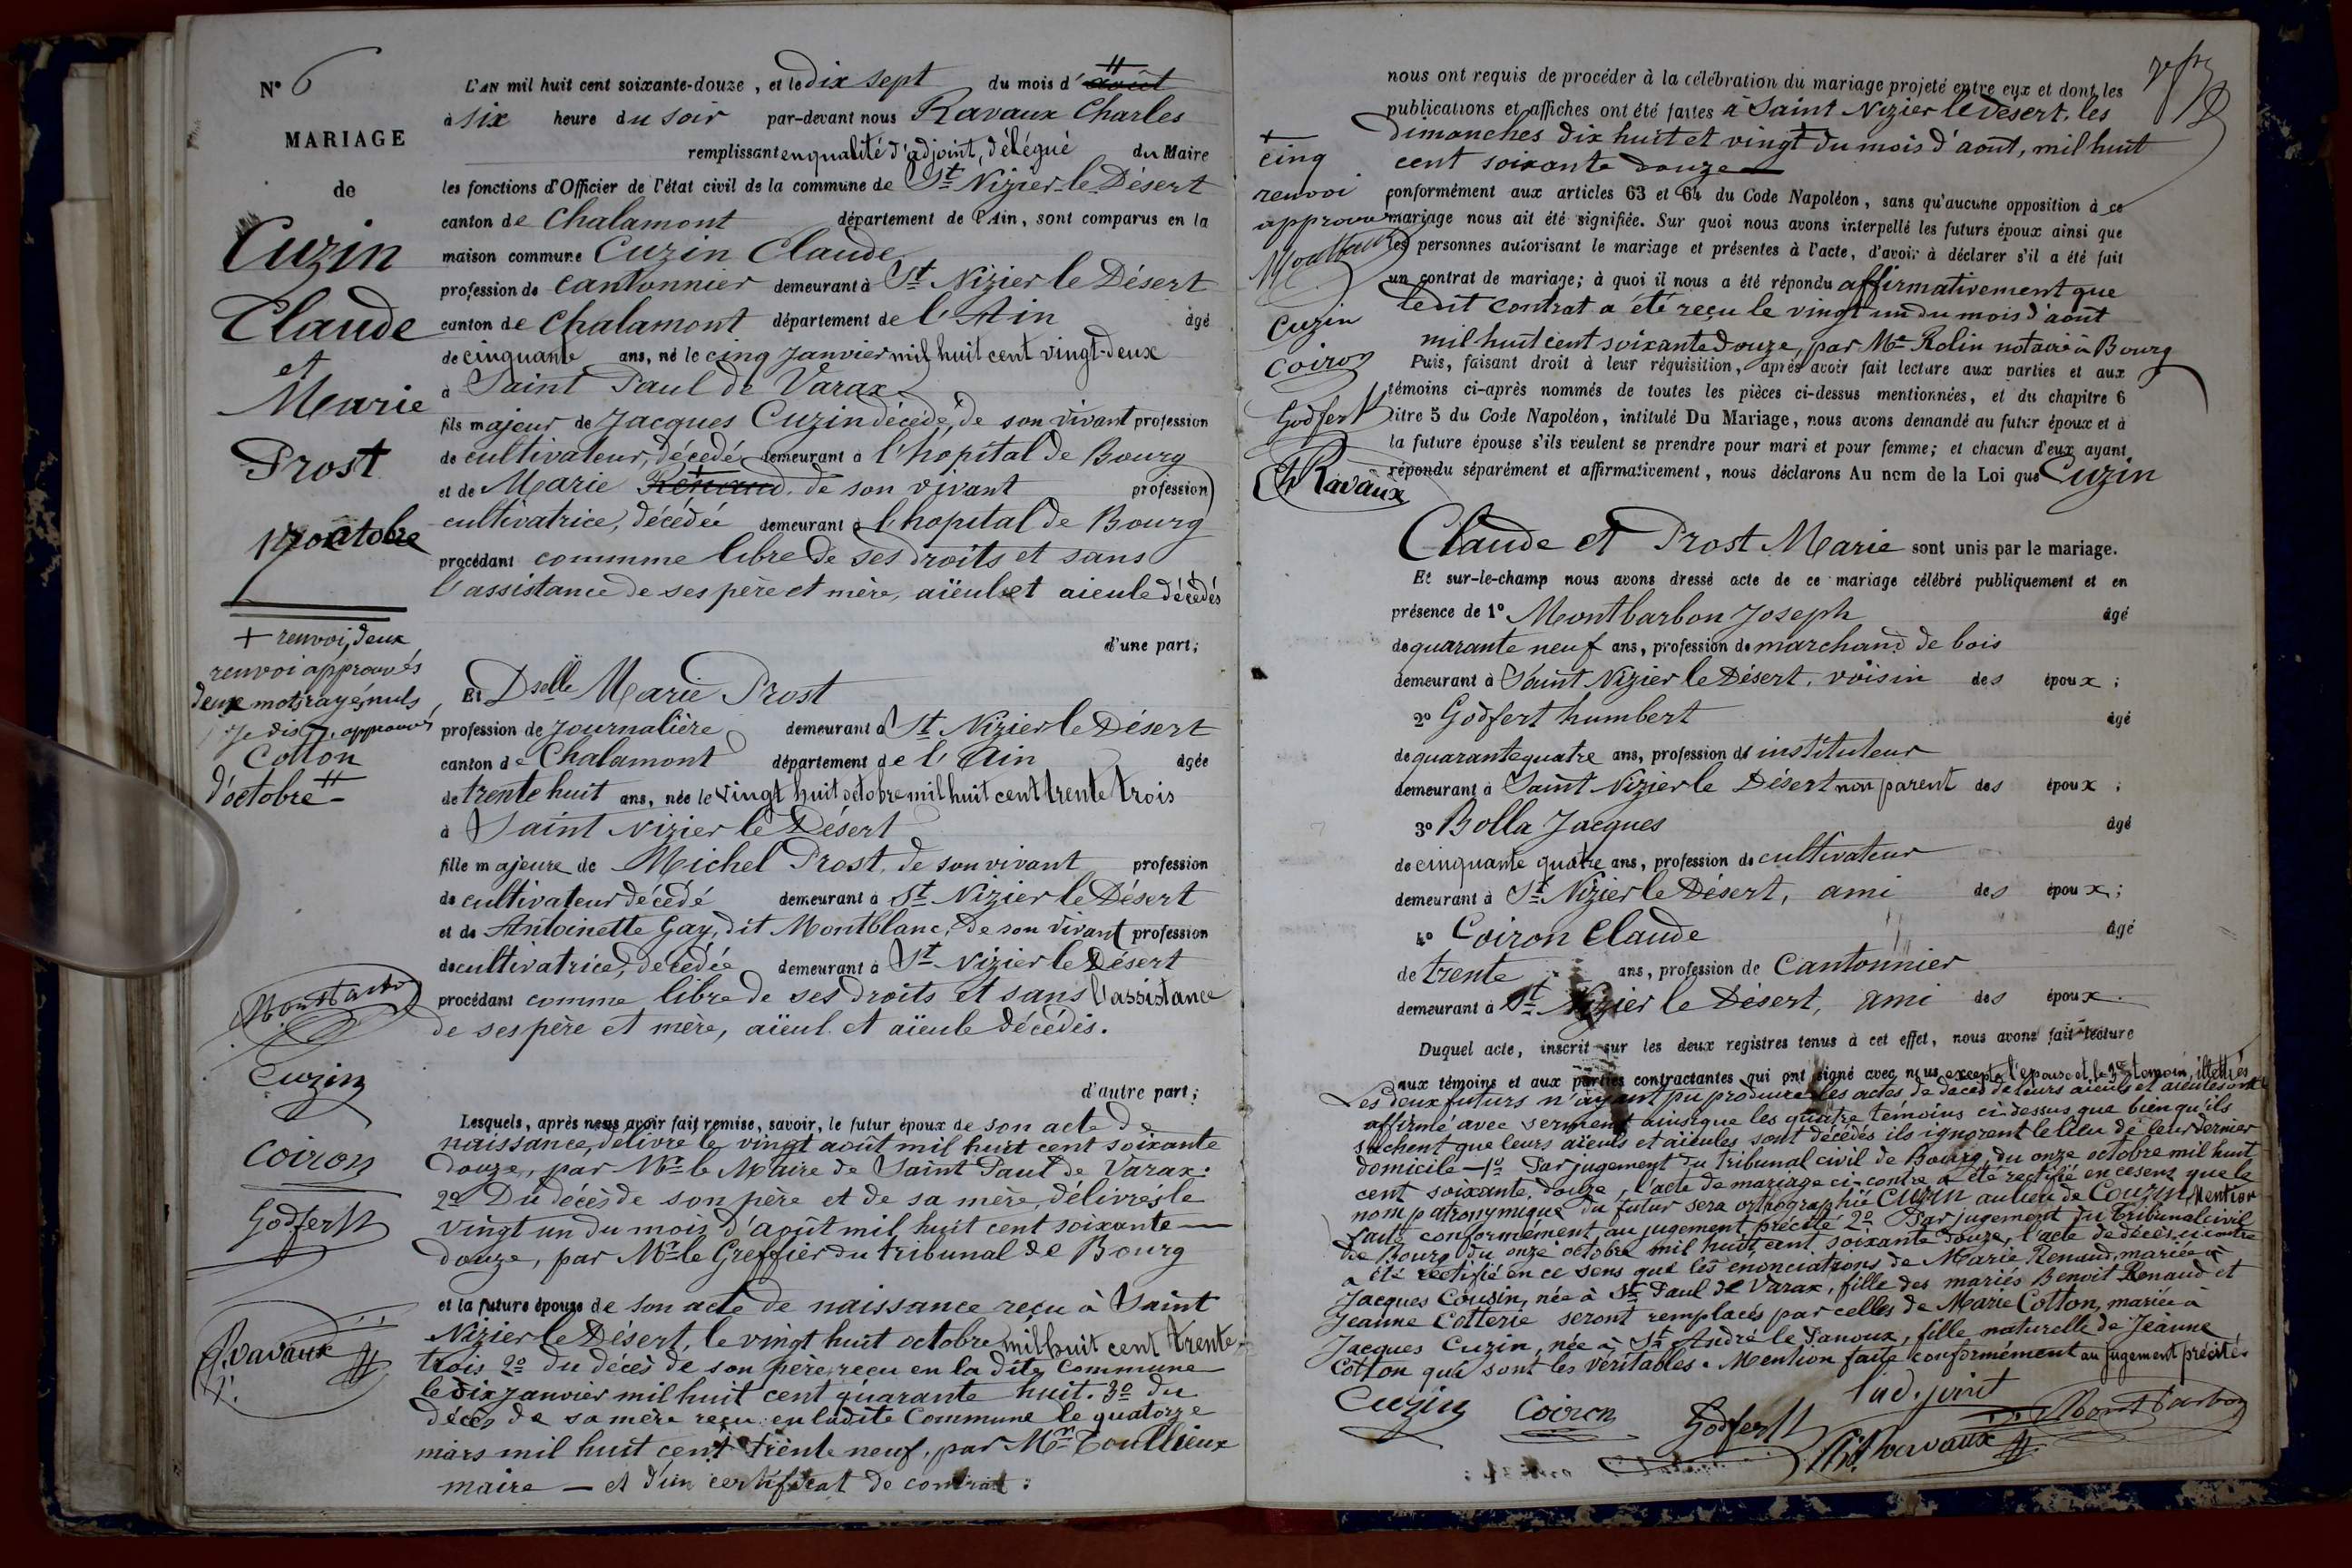 N° 6
MARIAGE
de
Cuzin
Claude
et
Marie
Prost
17 octobre
+ renvoi, deux
renvoi approuvés
deux mots rayés nuls
Je dis approuvés
Cotton
d'octobre #
Montbarbon
Cuzin
Coiron
Godfert
Ravaux
L'AN mil huit cent soixante-douze, et le dix sept du mois d' août #
à six heure du soir par-devant nous Ravaux Charles
remplissant en qualité d'adjoint, délégué du Maire
les fonctions d'Officier de l'état civil de la commune de St Nizier-le-Désert
canton de Chalamont département de l'Ain, sont comparus en la
maison commune Cuzin Claude
profession de cantonnier demeurant à St Nizier le Désert
canton de Chalamont département de l'Ain âgé
de cinquante ans, né le cinq Janvier mil huit cent vingt-deux
à Saint Paul de Varax
fils majeur de Jacques Cuzin décédé, de son vivant profession
de cultivateur, décédé demeurant à l'hopital de Bourg
et de Marie Renaud + de son vivant profession
cultivatrice, décédée demeurant à l'hopital de Bourg
procédant commme libre de ses droits et sans
l'assistance de ses père et mère, aïeul et aieule décédés
d'une part;
Et Dselle Marie Prost
profession de Journalière demeurant à St Nizier le Désert
canton de Chalamont département de l'Ain âgée
de trente huit ans, née le vingt huit octobre mil huit cent trente trois
à Saint Nizier le Désert
fille majeure de Michel Prost, de son vivant profession
de cultivateur décédé demeurant à St Nizier le Désert
et de Antoinette Gay, dit Montblanc, de son vivant profession
de cultivatrice, décédée demeurant à St Nizier le Désert
procédant comme libre de ses droits et sans l'assistance
de ses père et mère, aïeul et aïeule décédés.
d'autre part;
Lesquels, après nous avoir fait remise, savoir, le futur époux de son acte de
naissance, délivré le vingt août mil huit cent soixante
douze, par Mr le Maire de Saint Paul de Varax:
2° Du décès de son père et de sa mère, délivrés le
vingt un du mois d'août mil huit cent soixante
douze, par Mr le Greffier du tribunal de Bourg
et la future épouse de son acte de naissance reçu à Saint
Nizier le Désert, le vingt huit octobre mil huit cent trente-
trois 2° du décès de son père, reçu en la dite Commune
le dix janvier mil huit cent quarante huit. 3° du
décès de sa mère reçu en ladite Commune le quatorze
mars mil huit cent trente neuf, par Mr Toullieux
maire — et d'un certificat de contrat:
nous ont requis de procéder à la célébration du mariage projeté entre eux et dont les
publications et affiches ont été faites à Saint Nizier le Désert, les
dimanches dix huit et vingt du mois d'août, mil huit
cent soixante douze
conformément aux articles 63 et 64 du Code Napoléon, sans qu'aucune opposition à ce
mariage nous ait été signifiée. Sur quoi nous avons interpellé les futurs époux ainsi que
les personnes autorisant le mariage et présentes à l'acte, d'avoir à déclarer s'il a été fait
un contrat de mariage; à quoi il nous a été répondu affirmativement que
ledit contrat a été reçu le vingt un du mois d'août
mil huit cent soixante douze, par Me Rolin notaire à Bourg
Puis, faisant droit à leur réquisition, après avoir fait lecture aux parties et aux
témoins ci-après nommés de toutes les pièces ci-dessus mentionnées, et du chapitre 6
titre 5 du Code Napoléon, intitulé Du Mariage, nous avons demandé au futur époux et à
la future épouse s'ils veulent se prendre pour mari et pour femme; et chacun d'eux ayant
répondu séparément et affirmativement, nous déclarons Au nom de la Loi que Cuzin
Claude et Prost Marie sont unis par le mariage.
Et sur-le-champ nous avons dressé acte de ce mariage célébré publiquement et en
présence de 1° Montbarbon Joseph âgé
de quarante neuf ans, profession de marchand de bois
demeurant à Saint Nizier le Désert, voisin des époux;
2° Godfert humbert âgé
de quarante quatre ans, profession de instituteur
demeurant à Saint Nizier le Désert non parent des époux;
3° Bolla Jacques âgé
de cinquante quatre ans, profession de cultivateur
demeurant à St Nizier le Désert, ami des époux;
4° Coiron Claude âgé
de trente ans, profession de Cantonnier
demeurant à St Nizier le Désert, ami des époux.
Duquel acte, inscrit sur les deux registres tenus à cet effet, nous avons fait lecture
aux témoins et aux parties contractantes qui ont signé avec nous excepté l'épouse et le 3e témoin, illettrés
Les deux futurs n'ayant pu produire les actes de décès de leurs aïeuls et aieules ont
affirmé avec serment ainsi que les quatre témoins ci-dessus que bien qu'ils
sachent que leurs aïeuls et aïeules sont décédés ils ignorent le lieu de leur dernier
domicile — 1° Par jugement du tribunal civil de Bourg, du onze octobre mil huit
cent soixante douze, l'acte de mariage ci-contre a été rectifié en ce sens que le
nom patronymique du futur sera orthographié CUZIN au lieu de Couzin Mention
faite conformément au jugement précité 2° Par jugement du Tribunal civil
de Bourg du onze octobre mil huit cent soixante douze, l'acte de décès ci contre
a été rectifié en ce sens que les énonciations de Marie Renaud, mariée à
Jacques Cousin, née à St Paul de Varax, fille des mariés Benoit Renaud et
Jeanne Cotterie seront remplacés par celles de Marie Cotton, mariée à
Jacques Cuzin, née à St André le Panoux, fille naturelle de Jeanne
Cotton qui sont les véritables. Mention faite conformément au jugement précités
Cuzin Coiron Godfert l'adjoint Ravaux Montbarbon
+
cinq
renvoi
approuvé
Cuzin
Coiron
Godfert
Ch Ravaux